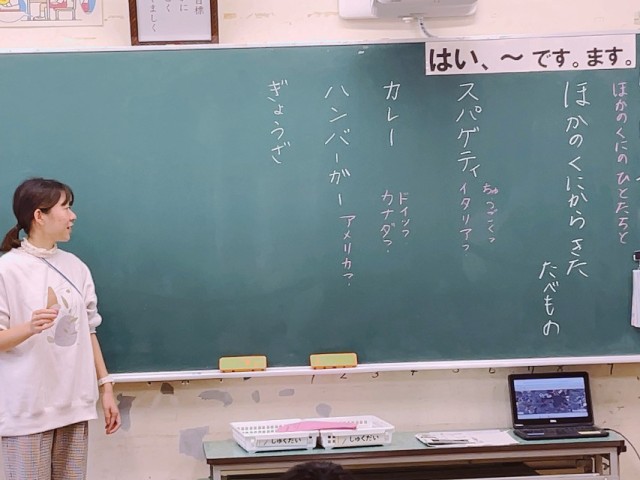 はい、～です。ます。
ほかのくにのひとたちと
ほかのくにからきた
たべもの
スパゲティ
ちゅうごく？
イタリア？
カレー
ドイツ？
カナダ？
ハンバーガー
アメリカ？
ぎょうざ
しゅくだい
しゅくだい